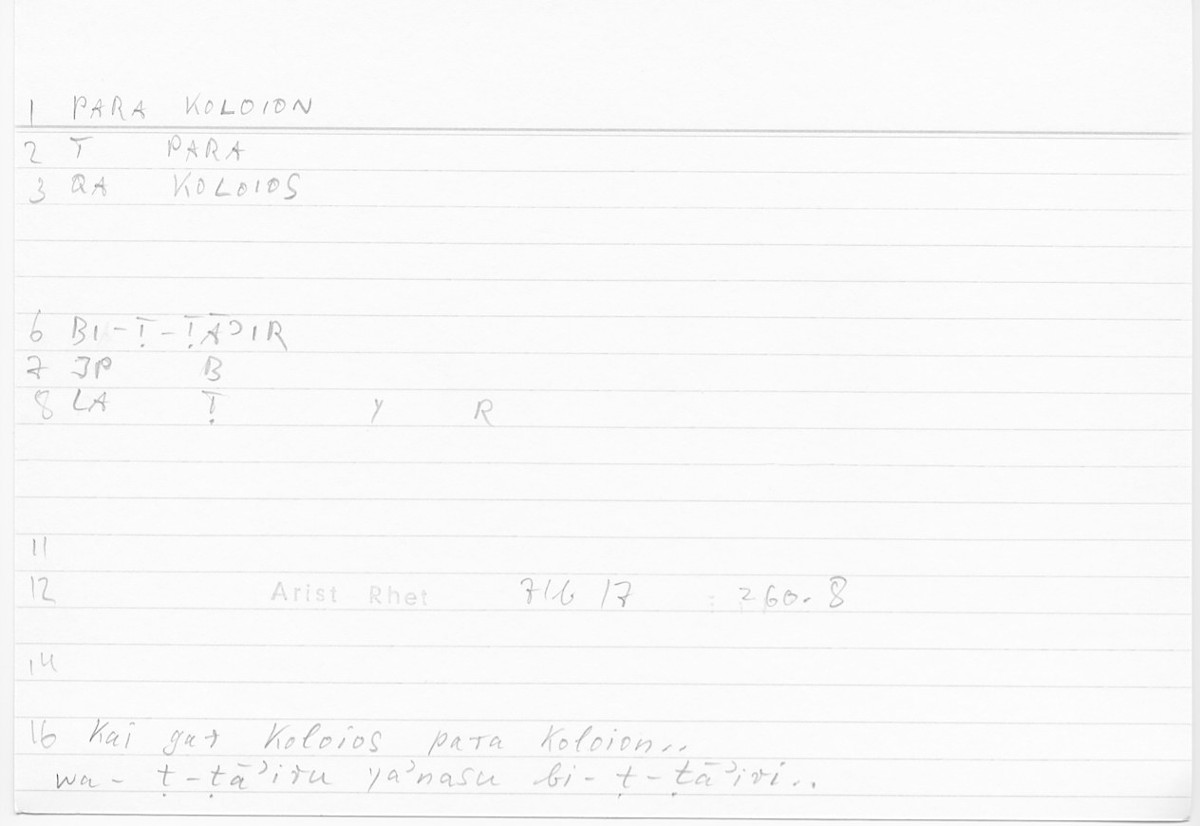 1 PARA KOLOION
2 T PARA
3 QA KOLOIOS
6 BI-Ṭ-ṬĀʾIR
7 JP B
8 LA Ṭ Y R
11
12 Arist Rhet 71b 17 : 260.8
14
16 Kai gar Koloios para Koloion..
wa-ṭ-ṭāʾiru yaʾnasu bi-ṭ-ṭāʾiri..